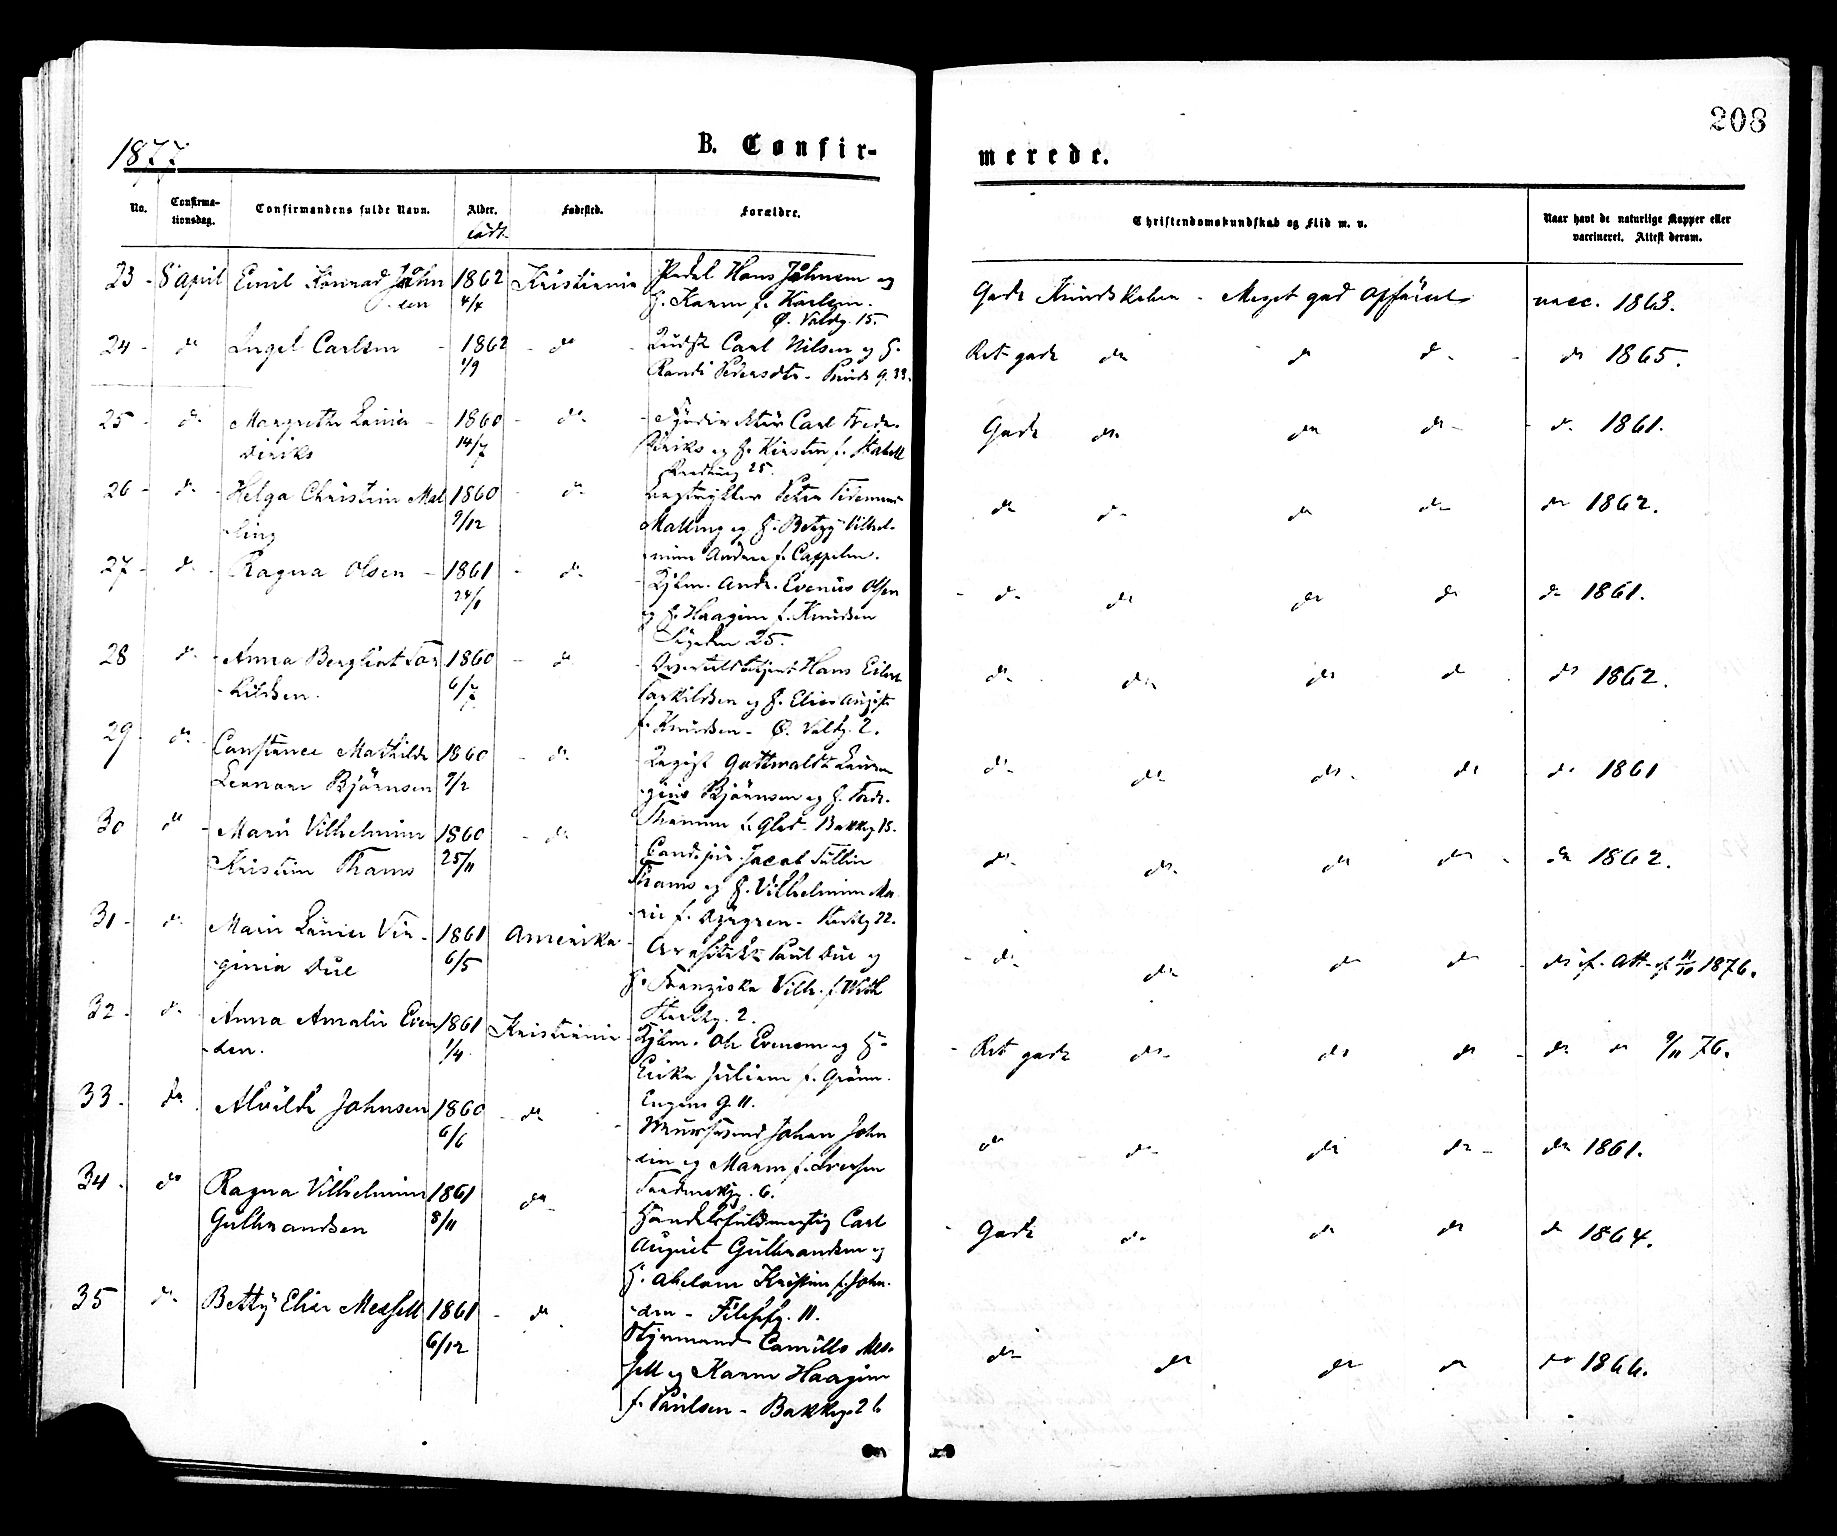 208
1877
B. Confir-
merede.
No.
Confirma-
tionsdag.
Confirmandens fulde Navn.
Alder.
født
Fødested.
Forældre.
Christendomskundskab og Flid m. v.
Naar havt de naturlige Kopper eller
vaccineret. Attest derom.
23 - 8 April Emil Konrad John 1862 Kristiania Pedel Hans Johnsen og
sen 4/4 H. Karen f. Karlsen.
Ø. Voldg. 15.
Gode Kundskaber - Meget god Opførsel vacc. 1863.
24 - do Ingel Carlsen - 1862 - do - Carl Nilsen og H.
1/9 Randi Pedersdtr -
Ret gode do do do - do 1865.
25 - do. Margrethe Louise - 1860 - do - Carl Fredr.
Diriks 14/7 Diriks og H. Kirsten f. Stabell
25.
Gode do do do - - do. 1861.
26 - do - Helga Christine Mal 1860 - do - Peter Tidemann
ling 9/12 Malling og H. Betzy Vilhel-
mine Andrea f. Cappelen.
do do - do do do 1862.
27 - do - Ragna Olsen - 1861 - do - Kjbm. Andr. Evenius Olsen
24/8 og H. Haagine f. Knudsen
25.
- do - do do do do 1861.
28 do - Anna Bergliot Tor 1860 - do - Hans Eilert
kildsen. 6/7 Torkildsen og H. Elise Auguste
f. Knudsen - Ø. Voldg. 2.
do - do do do do 1862.
29 - do - Constance Mathilde 1860 - do Gottwaldt Lauren
Lennore Bjørnsen 7/2 Bjørnsen og H. Fredr.
Thamine f. Glad - Bakkeg 15.
do - do do - do - do 1861
30 do - Marie Vilhelmine 1860 - do Cand. jur. Jacob Tullin
Kristine Thams 25/11 Thams og H. Vilhelmine Ma
rie f. - 22.
do - do - do do - do 1862.
31 - do - Marie Louise Vir - 1861 Amerika - Arkitekt Paul Due og
ginia Due 6/5 H. Franziska Vilh. f.
2.
- do - do do do - do cf. Att. af 11/10 1876.
32 - do - Anna Amalie Even 1861 Kristiania - Kjbm. Ole Evensen og H.
sen. 1/4 Erika Juliane f. Grønn.
G. 11.
- Ret gode do - do do - do do 9/11 76.
33 - do Alvilde Johnsen 1860 - do - Murersvend Johan John
6/6 sen og Maren f. Iversen
6.
do - do - do do - do 1861.
34 - do Ragna Vilhelmine 1861 do - Handelsfuldmægtig Carl
Gulbrandsen 8/11 August Gulbrandsen og
H. Abelone Kristine f. John-
sen - 11.
- Gode do do do do 1864.
35 do - Betty Elise Messell 1861 - do - Styrmand Camillo Mes-
6/12 sell og Karen Haagine
f. Paulsen - Bakkeg. 26
do - do do do - do 1866.